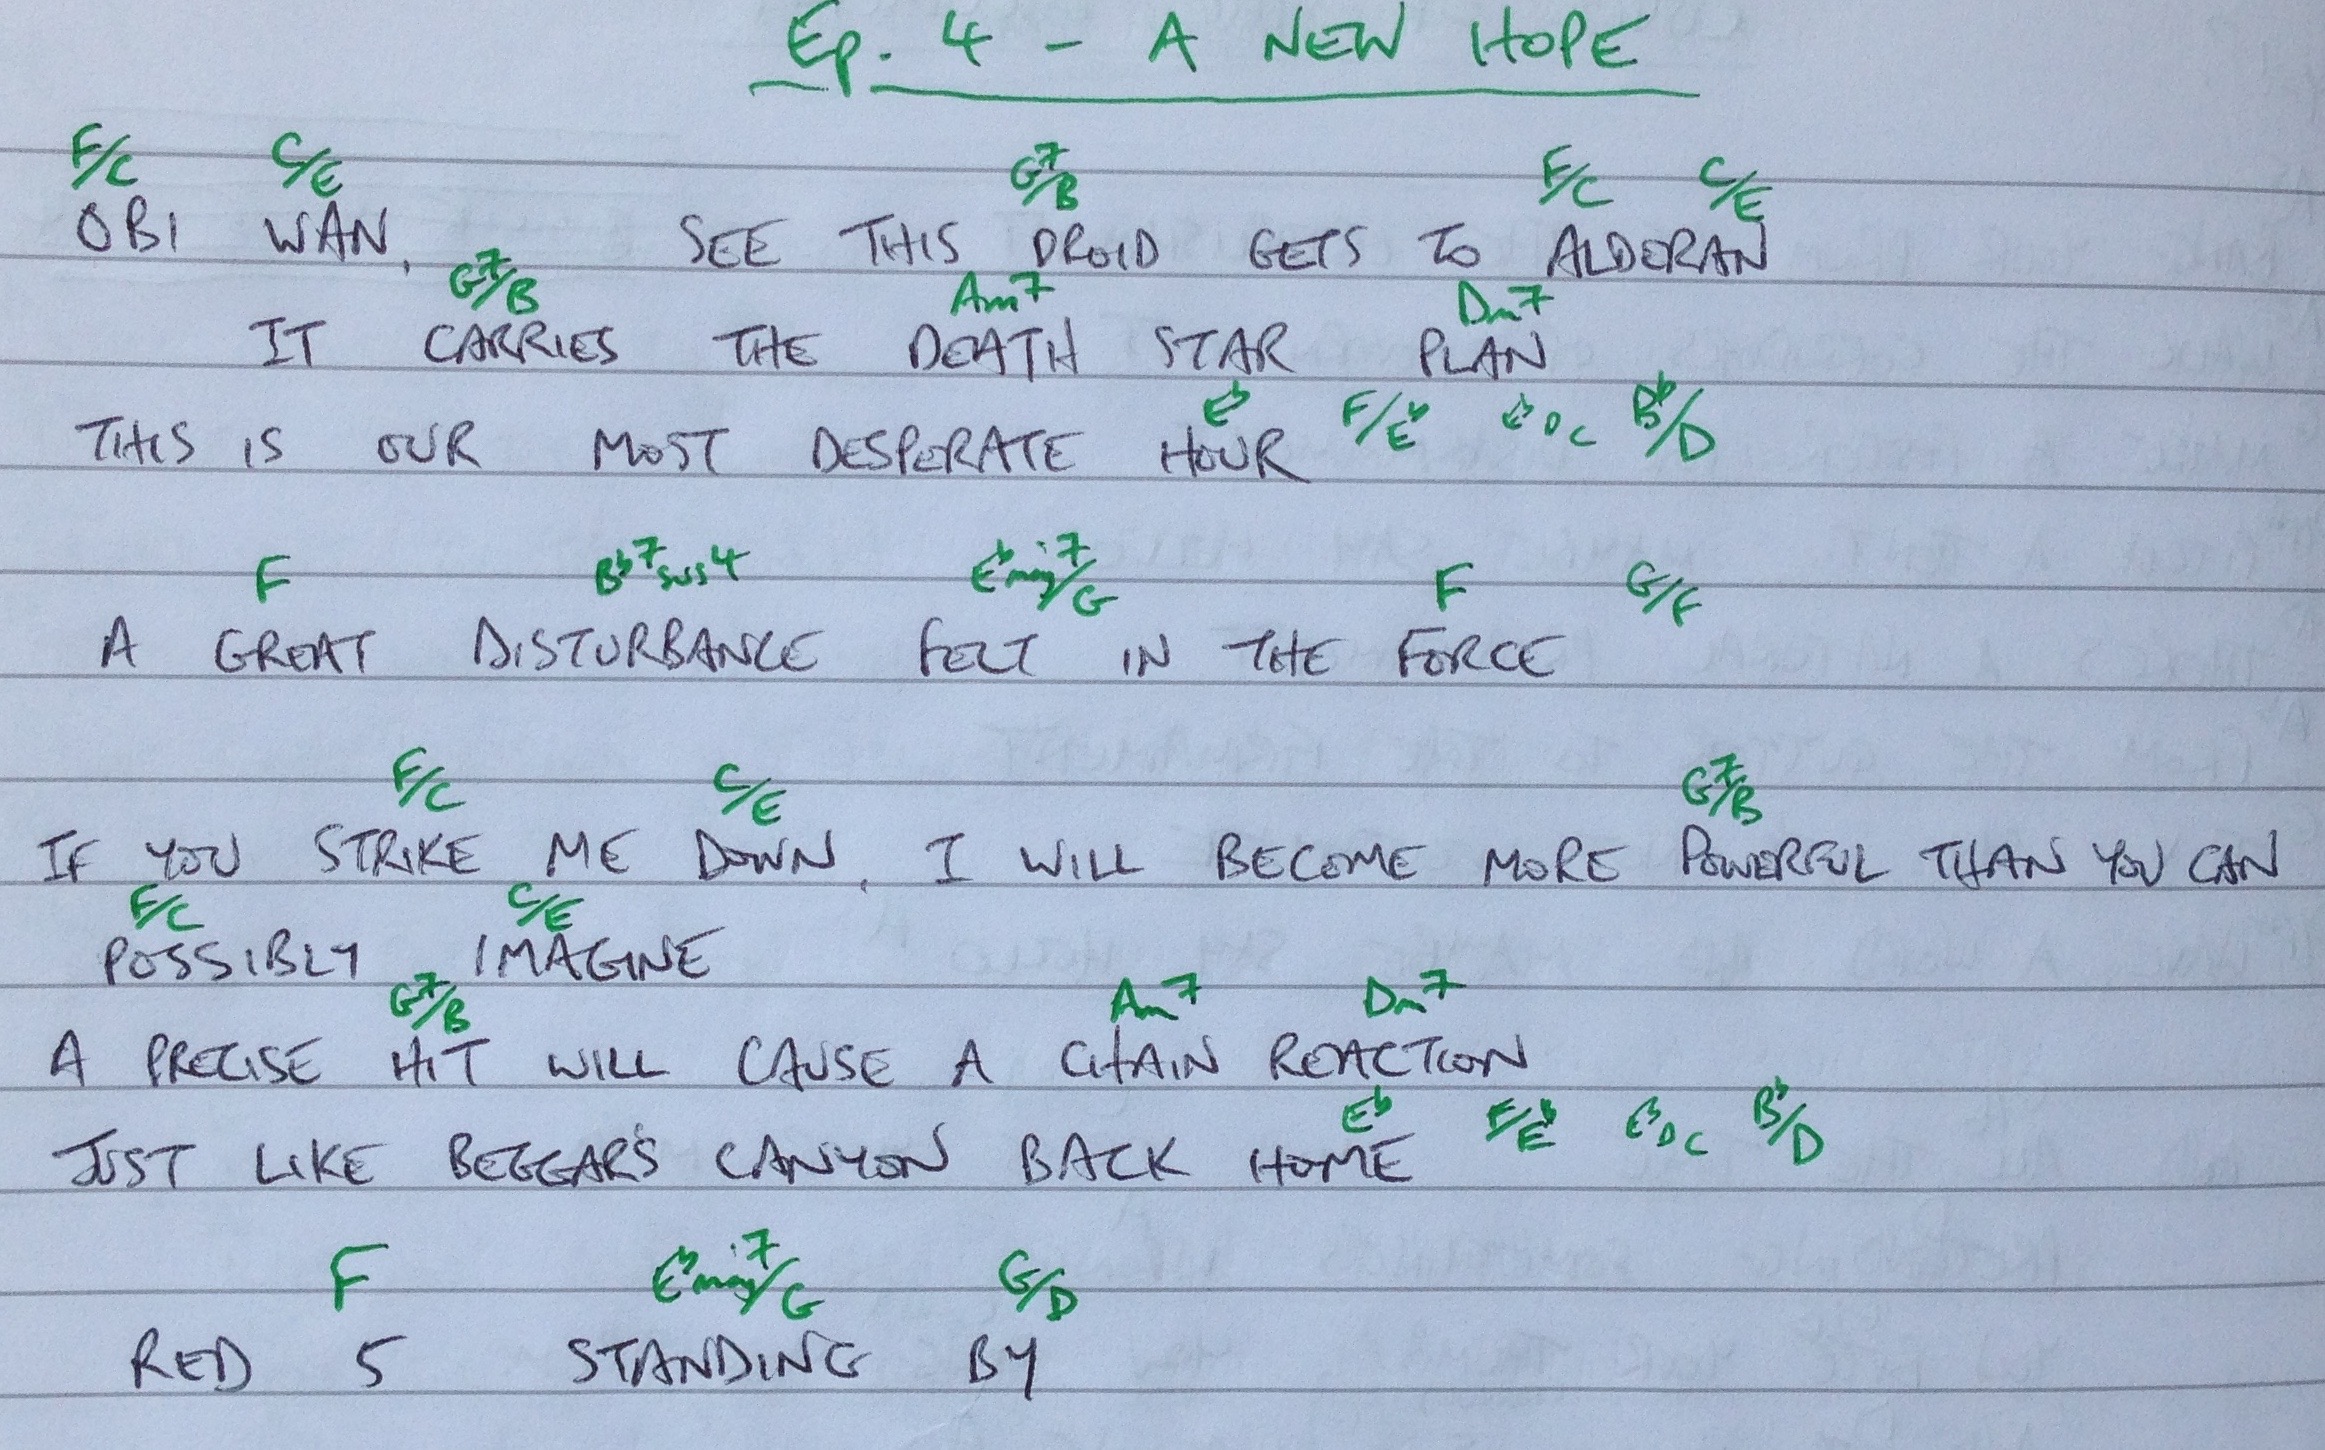 Ep. 4 - A NEW HOPE
F/C C/E G7/B F/C C/E
OBI WAN, SEE THIS DROID GETS TO ALDERAN
G7/B Am7 Dm7
IT CARRIES THE DEATH STAR PLAN
Eb F/Eb Eb D C Bb/D
THIS IS OUR MOST DESPERATE HOUR
F Bb7sus4 Ebmaj7/G F G/F
A GREAT DISTURBANCE FELT IN THE FORCE
F/C C/E G7/B
IF YOU STRIKE ME DOWN, I WILL BECOME MORE POWERFUL THAN YOU CAN
F/C C/E
POSSIBLY IMAGINE
G7/B Am7 Dm7
A PRECISE HIT WILL CAUSE A CHAIN REACTION
Eb F/Eb Eb D C Bb/D
JUST LIKE BEGGAR'S CANYON BACK HOME
F Ebmaj7/G G/D
RED 5 STANDING BY